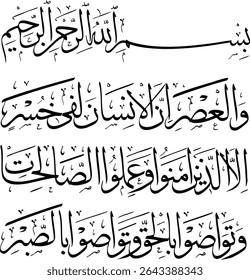 بِسْمِ ٱللَّهِ ٱلرَّحْمَٰنِ ٱلرَّحِيمِ
وَالْعَصْرِ إِنَّ الْإِنْسَانَ لَفِي خُسْرٍ
إِلَّا الَّذِينَ آمَنُوا وَعَمِلُوا الصَّالِحَاتِ
وَتَوَاصَوْا بِالْحَقِّ وَتَوَاصَوْا بِالصَّبْرِ
shutterstock.com · 2643388343